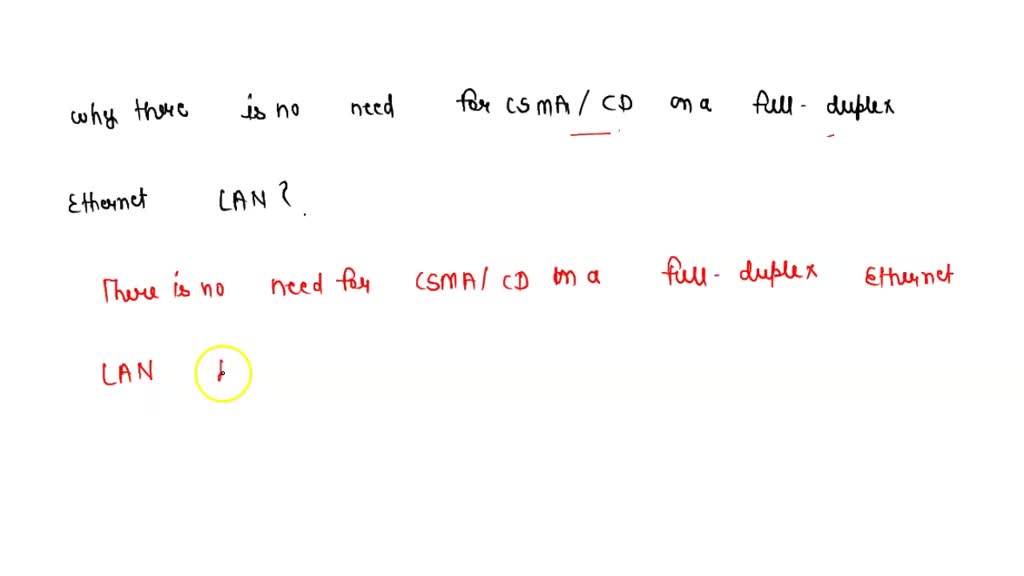 why there is no need for CSMA/CD on a full-duplex
Ethernet LAN?
There is no need for CSMA/CD on a full-duplex Ethernet
LAN